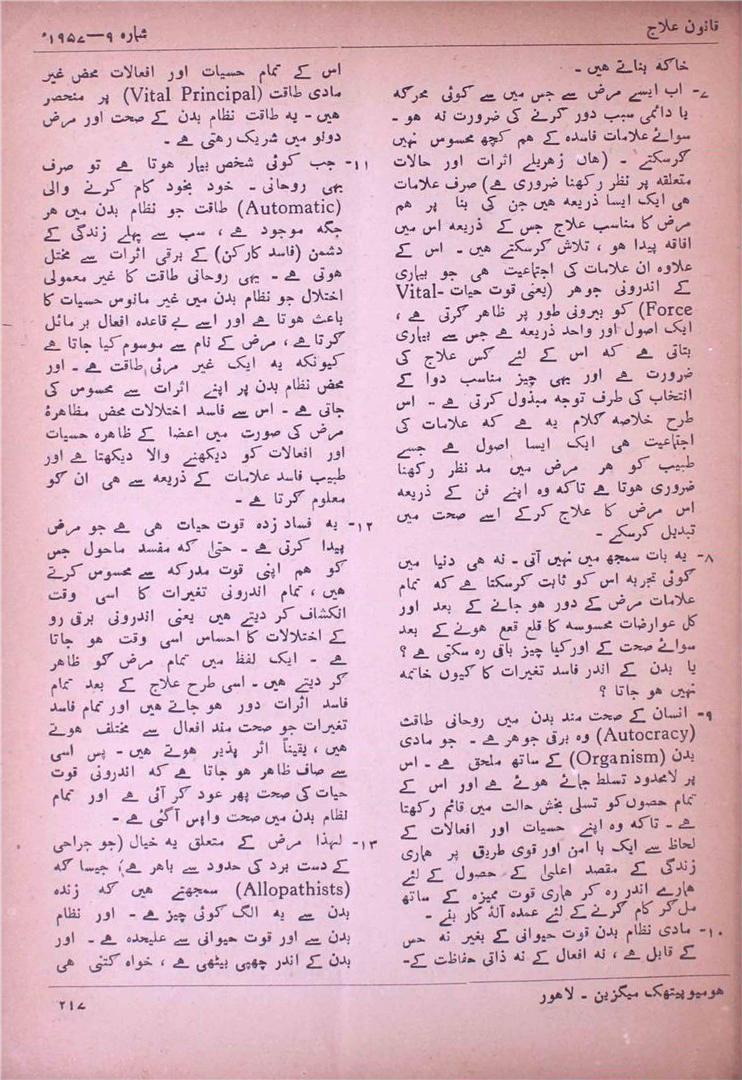 قانون علاج
شمارہ ۹—۱۹۵۷ء
خاکہ بناتے ہیں ۔
۷- اب ایسے مرض سے جس میں سے کوئی محرکہ
یا دائمی سبب دور کرنے کی ضرورت نہ ہو ۔
سوائے علامات فاسدہ کے ہم کچھ محسوس نہیں
کرسکتے ۔ (ہاں زہریلے اثرات اور حالات
متعلقہ پر نظر رکھنا ضروری ہے) صرف علامات
ہی ایک ایسا ذریعہ ہیں جن کی بنا پر ہم
مرض کا مناسب علاج جس کے ذریعہ اس میں
افاقہ پیدا ہو ، تلاش کرسکتے ہیں ۔ اس کے
علاوہ ان علامات کی اجتماعیت ہی جو بیماری
کے اندرونی جوہر (یعنی قوت حیات Vital-
Force) کو بیرونی طور پر ظاہر کرتی ہے ،
ایک اصول اور واحد ذریعہ ہے جس سے بیماری
بتاتی ہے کہ اس کے لئے کس علاج کی
ضرورت ہے اور یہی چیز مناسب دوا کے
انتخاب کی طرف توجہ مبذول کرتی ہے ۔ اس
طرح خلاصہ کلام یہ ہے کہ علامات کی
اجتماعیت ہی ایک ایسا اصول ہے جسے
طبیب کو ہر مرض میں مد نظر رکھنا
ضروری ہوتا ہے تاکہ وہ اپنے فن کے ذریعہ
اس مرض کا علاج کرکے اسے صحت میں
تبدیل کرسکے ۔
۸- یہ بات سمجھ میں نہیں آتی ۔ نہ ہی دنیا میں
کوئی تجربہ اس کو ثابت کرسکتا ہے کہ تمام
علامات مرض کے دور ہو جانے کے بعد اور
کل عوارضات محسوسہ کا قلع قمع ہونے کے بعد
سوائے صحت کے اور کیا چیز باقی رہ سکتی ہے ؟
یا بدن کے اندر فاسد تغیرات کا کیوں خاتمہ
نہیں ہو جاتا ؟
۹- انسان کے صحت مند بدن میں روحانی طاقت
(Autocracy) وہ برقی جوہر ہے ۔ جو مادی
بدن (Organism) کے ساتھ ملحق ہے ۔ اس
پر لامحدود تسلط جمائے ہوئے ہے اور اس کے
تمام حصوں کو تسلی بخش حالت میں قائم رکھتا
ہے ۔ تاکہ وہ اپنے حسیات اور افعالات کے
لحاظ سے ایک با امن اور قوی طریق پر ہماری
زندگی کے مقصد اعلیٰ کے حصول کے لئے
ہمارے اندر رہ کر ہماری قوت ممیزہ کے ساتھ
مل کر کام کرنے کے لئے عمدہ آلۂ کار بنے ۔
۱۰- مادی نظام بدن قوت حیوانی کے بغیر نہ حس
کے قابل ہے ، نہ افعال کے نہ ذاتی حفاظت کے-
اس کے تمام حسیات اور افعالات محض غیر
مادی طاقت (Vital Principal) پر منحصر
ہیں ۔ یہ طاقت نظام بدن کے صحت اور مرض
دونو میں شریک رہتی ہے ۔
۱۱- جب کوئی شخص بیمار ہوتا ہے تو صرف
یہی روحانی ۔ خود بخود کام کرنے والی
(Automatic) طاقت جو نظام بدن میں ہر
جگہ موجود ہے ، سب سے پہلے زندگی کے
دشمن (فاسد کارکن) کے برقی اثرات سے مختل
ہوتی ہے ۔ یہی روحانی طاقت کا غیر معمولی
اختلال جو نظام بدن میں غیر مانوس حسیات کا
باعث ہوتا ہے اور اسے بے قاعدہ افعال پر مائل
کرتا ہے ، مرض کے نام سے موسوم کیا جاتا ہے
کیونکہ یہ ایک غیر مرئی طاقت ہے ۔ اور
محض نظام بدن پر اپنے اثرات سے محسوس کی
جاتی ہے ۔ اس سے فاسد اختلالات محض مظاہرۂ
مرض کی صورت میں اعضا کے ظاہرہ حسیات
اور افعالات کو دیکھنے والا دیکھتا ہے اور
طبیب فاسد علامات کے ذریعہ سے ہی ان کو
معلوم کرتا ہے ۔
۱۲- یہ فساد زدہ قوت حیات ہی ہے جو مرض
پیدا کرتی ہے ۔ حتیٰ کہ مفسد ماحول جس
کو ہم اپنی قوت مدرکہ سے محسوس کرتے
ہیں ، تمام اندرونی تغیرات کا اسی وقت
انکشاف کر دیتے ہیں یعنی اندرونی برقی رو
کے اختلالات کا احساس اسی وقت ہو جاتا
ہے ۔ ایک لفظ میں تمام مرض کو ظاہر
کر دیتے ہیں ۔ اسی طرح علاج کے بعد تمام
فاسد اثرات دور ہو جاتے ہیں اور تمام فاسد
تغیرات جو صحت مند افعال سے مختلف ہوتے
ہیں ، یقیناً اثر پذیر ہوتے ہیں ۔ پس اسی
سے صاف ظاہر ہو جاتا ہے کہ اندرونی قوت
حیات کی صحت پھر عود کر آئی ہے اور تمام
نظام بدن میں صحت واپس آگئی ہے ۔
۱۳- لہذا مرض کے متعلق یہ خیال (جو جراحی
کے دست برد کی حدود سے باہر ہے) جیسا کہ
(Allopathists) سمجھتے ہیں کہ زندہ
بدن سے یہ الگ کوئی چیز ہے ۔ اور نظام
بدن سے اور قوت حیوانی سے علیحدہ ہے ۔ اور
بدن کے اندر چھپی بیٹھی ہے ، خواہ کتنی ہی
ہومیوپیتھک میگزین ۔ لاہور
۲۱۷